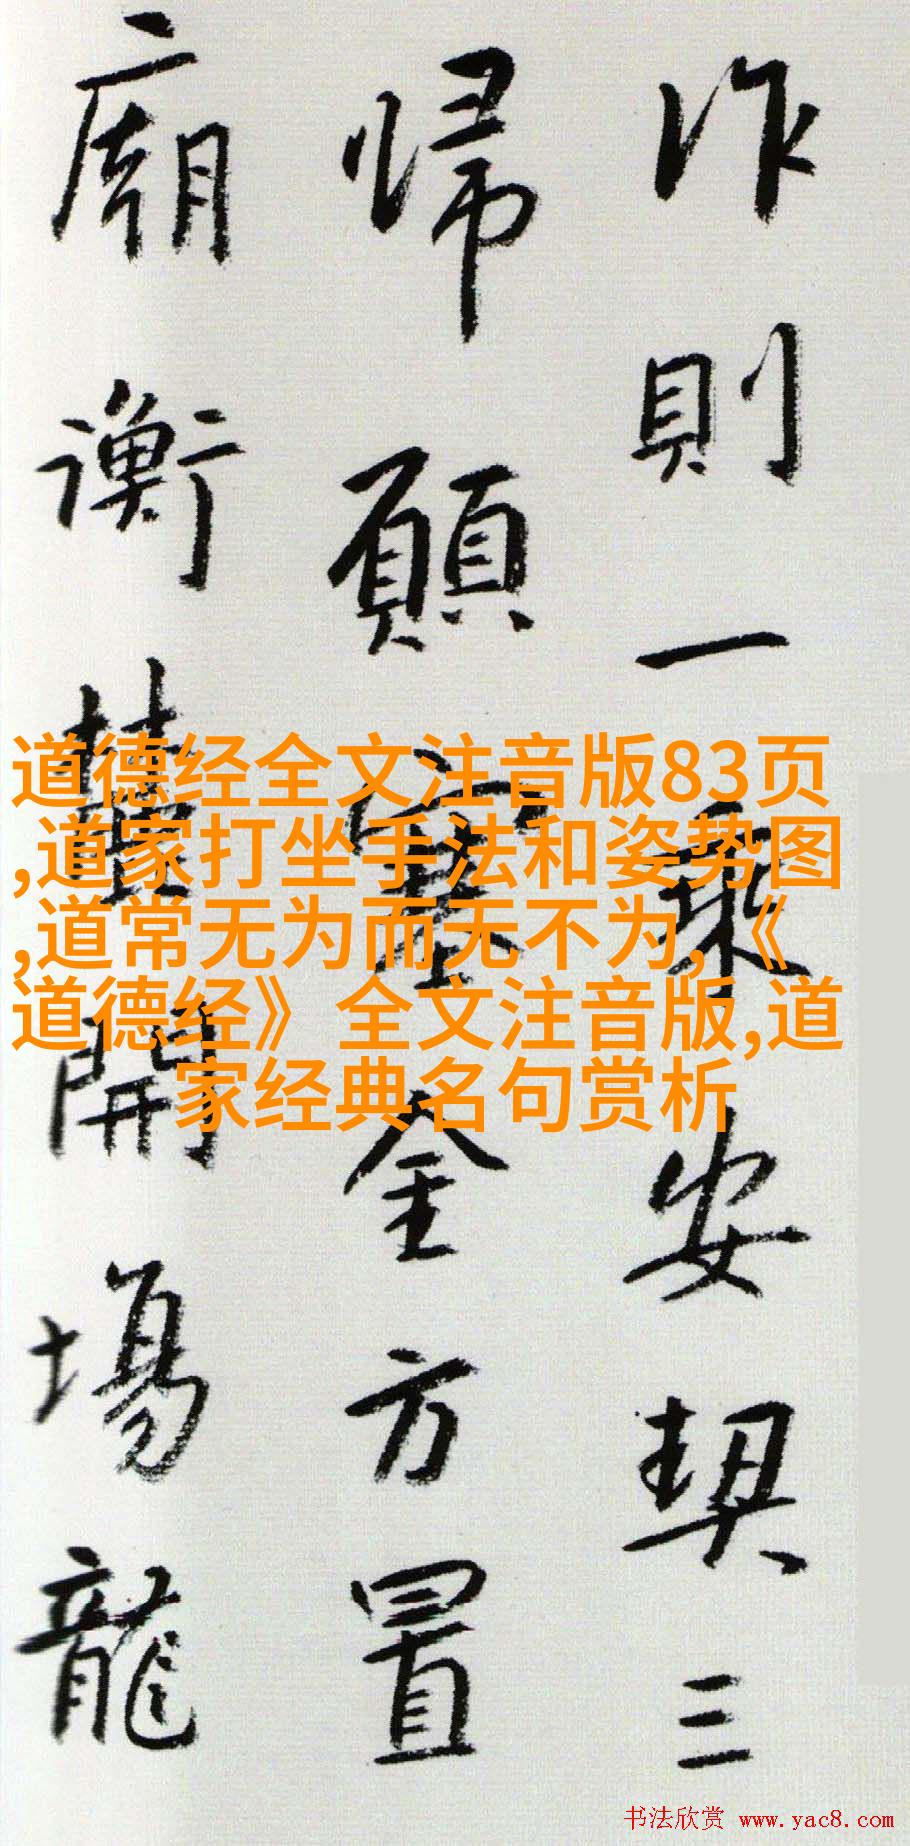 作則一乘安契三
歸願金方置
廟衡開場龍
道德经全文注音版83页
,道家打坐手法和姿势图
,道常无为而无不为,《
道德经》全文注音版,道
家经典名句赏析
书法欣赏 www.yac8.com